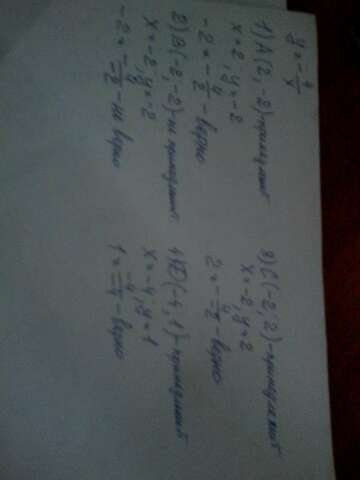 y = -4/x
1) A(2, -2) - принадлежит
x = 2, y = -2
-2 = -4/2 - верно
2) B(-2, -2) - не принадлежит
x = -2, y = -2
-2 = -4/-2 - не верно
3) C(-2, 2) - принадлежит
x = -2, y = 2
2 = -4/-2 - верно
4) D(-4, 1) - принадлежит
x = -4, y = 1
1 = -4/-4 - верно